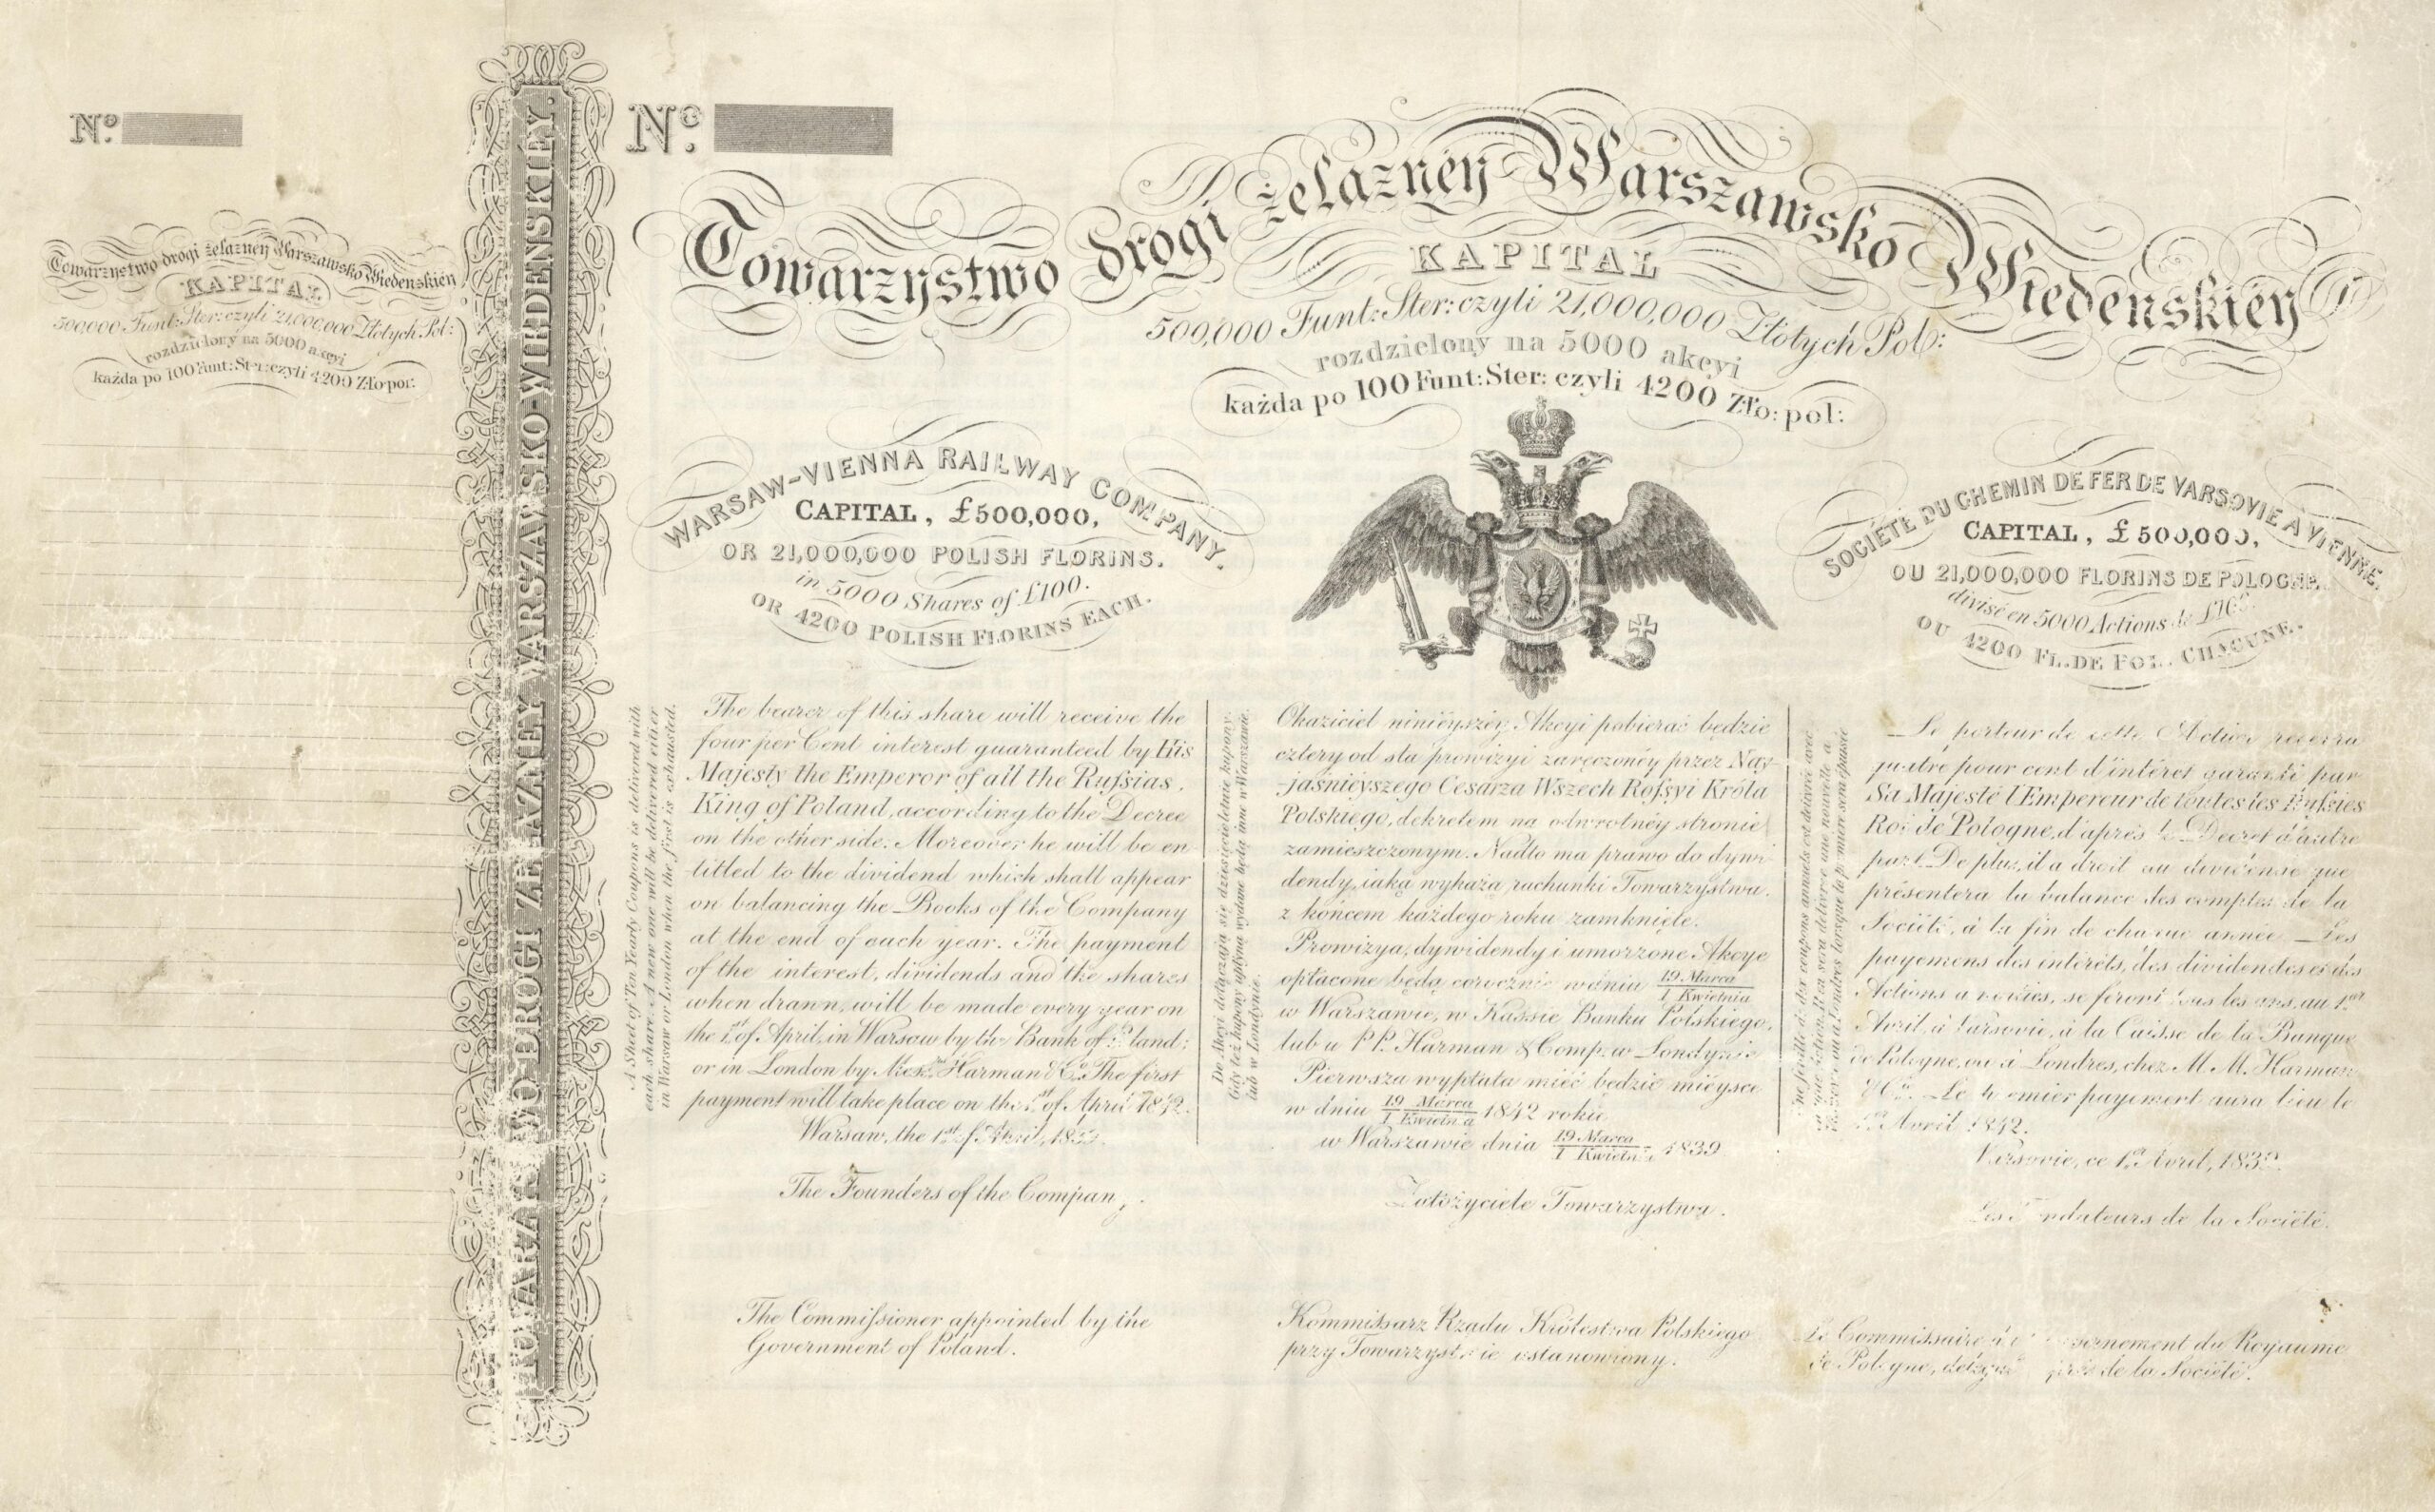 Nº
Towarzystwo drogi żelaznéy Warszawsko Wiedenskiéy
KAPITAL
500,000 Funt: Ster: czyli 21,000,000 Złotych Pol:
rozdzielony na 5000 akcyi
każda po 100 Funt: Ster: czyli 4200 Zło: pol:
WARSZAWSKO-WIEDENSKIEY.
Nº
Towarzystwo drogi żelaznéy Warszawsko Wiedenskiéy
KAPITAL
500,000 Funt: Ster: czyli 21,000,000 Złotych Pol:
rozdzielony na 5000 akcyi
każda po 100 Funt: Ster: czyli 4200 Zło: pol:
WARSAW-VIENNA RAILWAY COMPANY.
CAPITAL, £500,000,
OR 21,000,000 POLISH FLORINS.
in 5000 Shares of £100.
OR 4200 POLISH FLORINS EACH.
A Sheet of Ten Yearly Coupons is delivered with
each share. A new one will be delivered either
in Warsaw or London when the first is exhausted.
The bearer of this share will receive the
four per Cent interest guaranteed by His
Majesty the Emperor of all the Russias.
King of Poland, according to the Decree
on the other side. Moreover he will be en
titled to the dividend which shall appear
on balancing the Books of the Company
at the end of each year. The payment
of the interest, dividends and the shares
when drawn, will be made every year on
the 1st of April, in Warsaw by the Bank of Poland;
or in London by Messrs Harman & Co. The first
payment will take place on the 1st of April 1842.
Warsaw, the 1st of April, 1839.
The Founders of the Company.
The Commissioner appointed by the
Government of Poland.
Do Akcyi dołączają się dziesięcioletnie kupony.
Gdy też kupony upłyną wydane będą inne w Warszawie.
lub w Londynie.
Okaziciel ninieyszéy Akcyi pobierać będzie
cztery od sta prowizyi zaręczonéy przez Nay-
jaśnieyszego Cesarza Wszech Rossyi Króla
Polskiego, dekretem na odwrotnéy stronie
zamieszczonym. Nadto ma prawo do dywi
dendy, iaką wykażą rachunki Towarzystwa.
z końcem każdego roku zamknięte.
Prowizya, dywidendy i umorzone Akcye
opłacone będą corocznie w dniu 19 Marca / 1 Kwietnia
w Warszawie, w Kassie Banku Polskiego,
lub u P.P. Harman & Comp. w Londynie
Pierwsza wypłata mieć będzie mieysce
w dniu 19 Marca / 1 Kwietnia 1842 roku
w Warszawie dnia 19 Marca / 1 Kwietnia 1839
Założyciele Towarzystwa.
Kommissarz Rządu Królestwa Polskiego
przy Towarzystwie ustanowiony.
SOCIÉTÉ DU CHEMIN DE FER DE VARSOVIE A VIENNE.
CAPITAL, £500,000,
OU 21,000,000 FLORINS DE POLOGNE.
divisé en 5000 Actions de £100.
OU 4200 FL. DE POL. CHACUNE.
Une feuille de dix coupons annuels est délivrée avec
Le porteur de cette Action recevra
quatre pour cent d'intéret garanti par
Sa Majesté l'Empereur de toutes les Russies
Roi de Pologne, d'après le Décret d'autre
part. De plus, il a droit au dividende que
présentera la balance des comptes de la
Société, à la fin de chaque année. Les
payemens des intérets, des dividendes et des
Actions, se feront tous les ans, au 1er
Avril, à Varsovie, à la Caisse de la Banque
de Pologne, ou à Londres, chez M.M. Harman
& Cie. Le premier payement aura lieu le
1er Avril 1842.
Varsovie, ce 1er Avril, 1839.
Les Fondateurs de la Société.
Le Commissaire du Gouvernement du Royaume
de Pologne, délégué près de la Société.